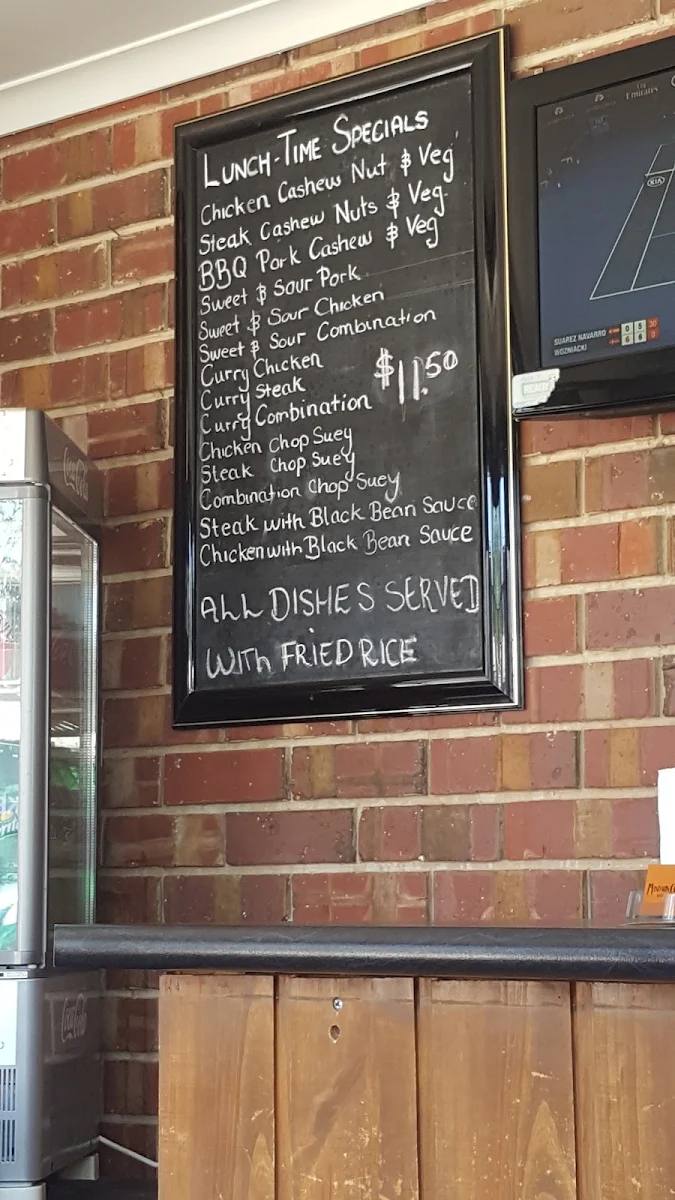 LUNCH-TIME SPECIALS
Chicken Cashew Nut & Veg
Steak Cashew Nuts & Veg.
BBQ Pork Cashew & Veg
Sweet & Sour Pork
Sweet & Sour Chicken
Sweet & Sour Combination
Curry Chicken
Curry Steak
Curry Combination
$11.50
Chicken Chop Suey
Steak Chop Suey
Combination Chop Suey
Steak with Black Bean Sauce
Chicken with Black Bean Sauce
ALL DISHES SERVED
WITh FRIED RICE
Emirates
KIA
SUAREZ NAVARRO 0 5 30
WOZNIACKI 6 6 0
Coca-Cola
Coca-Cola